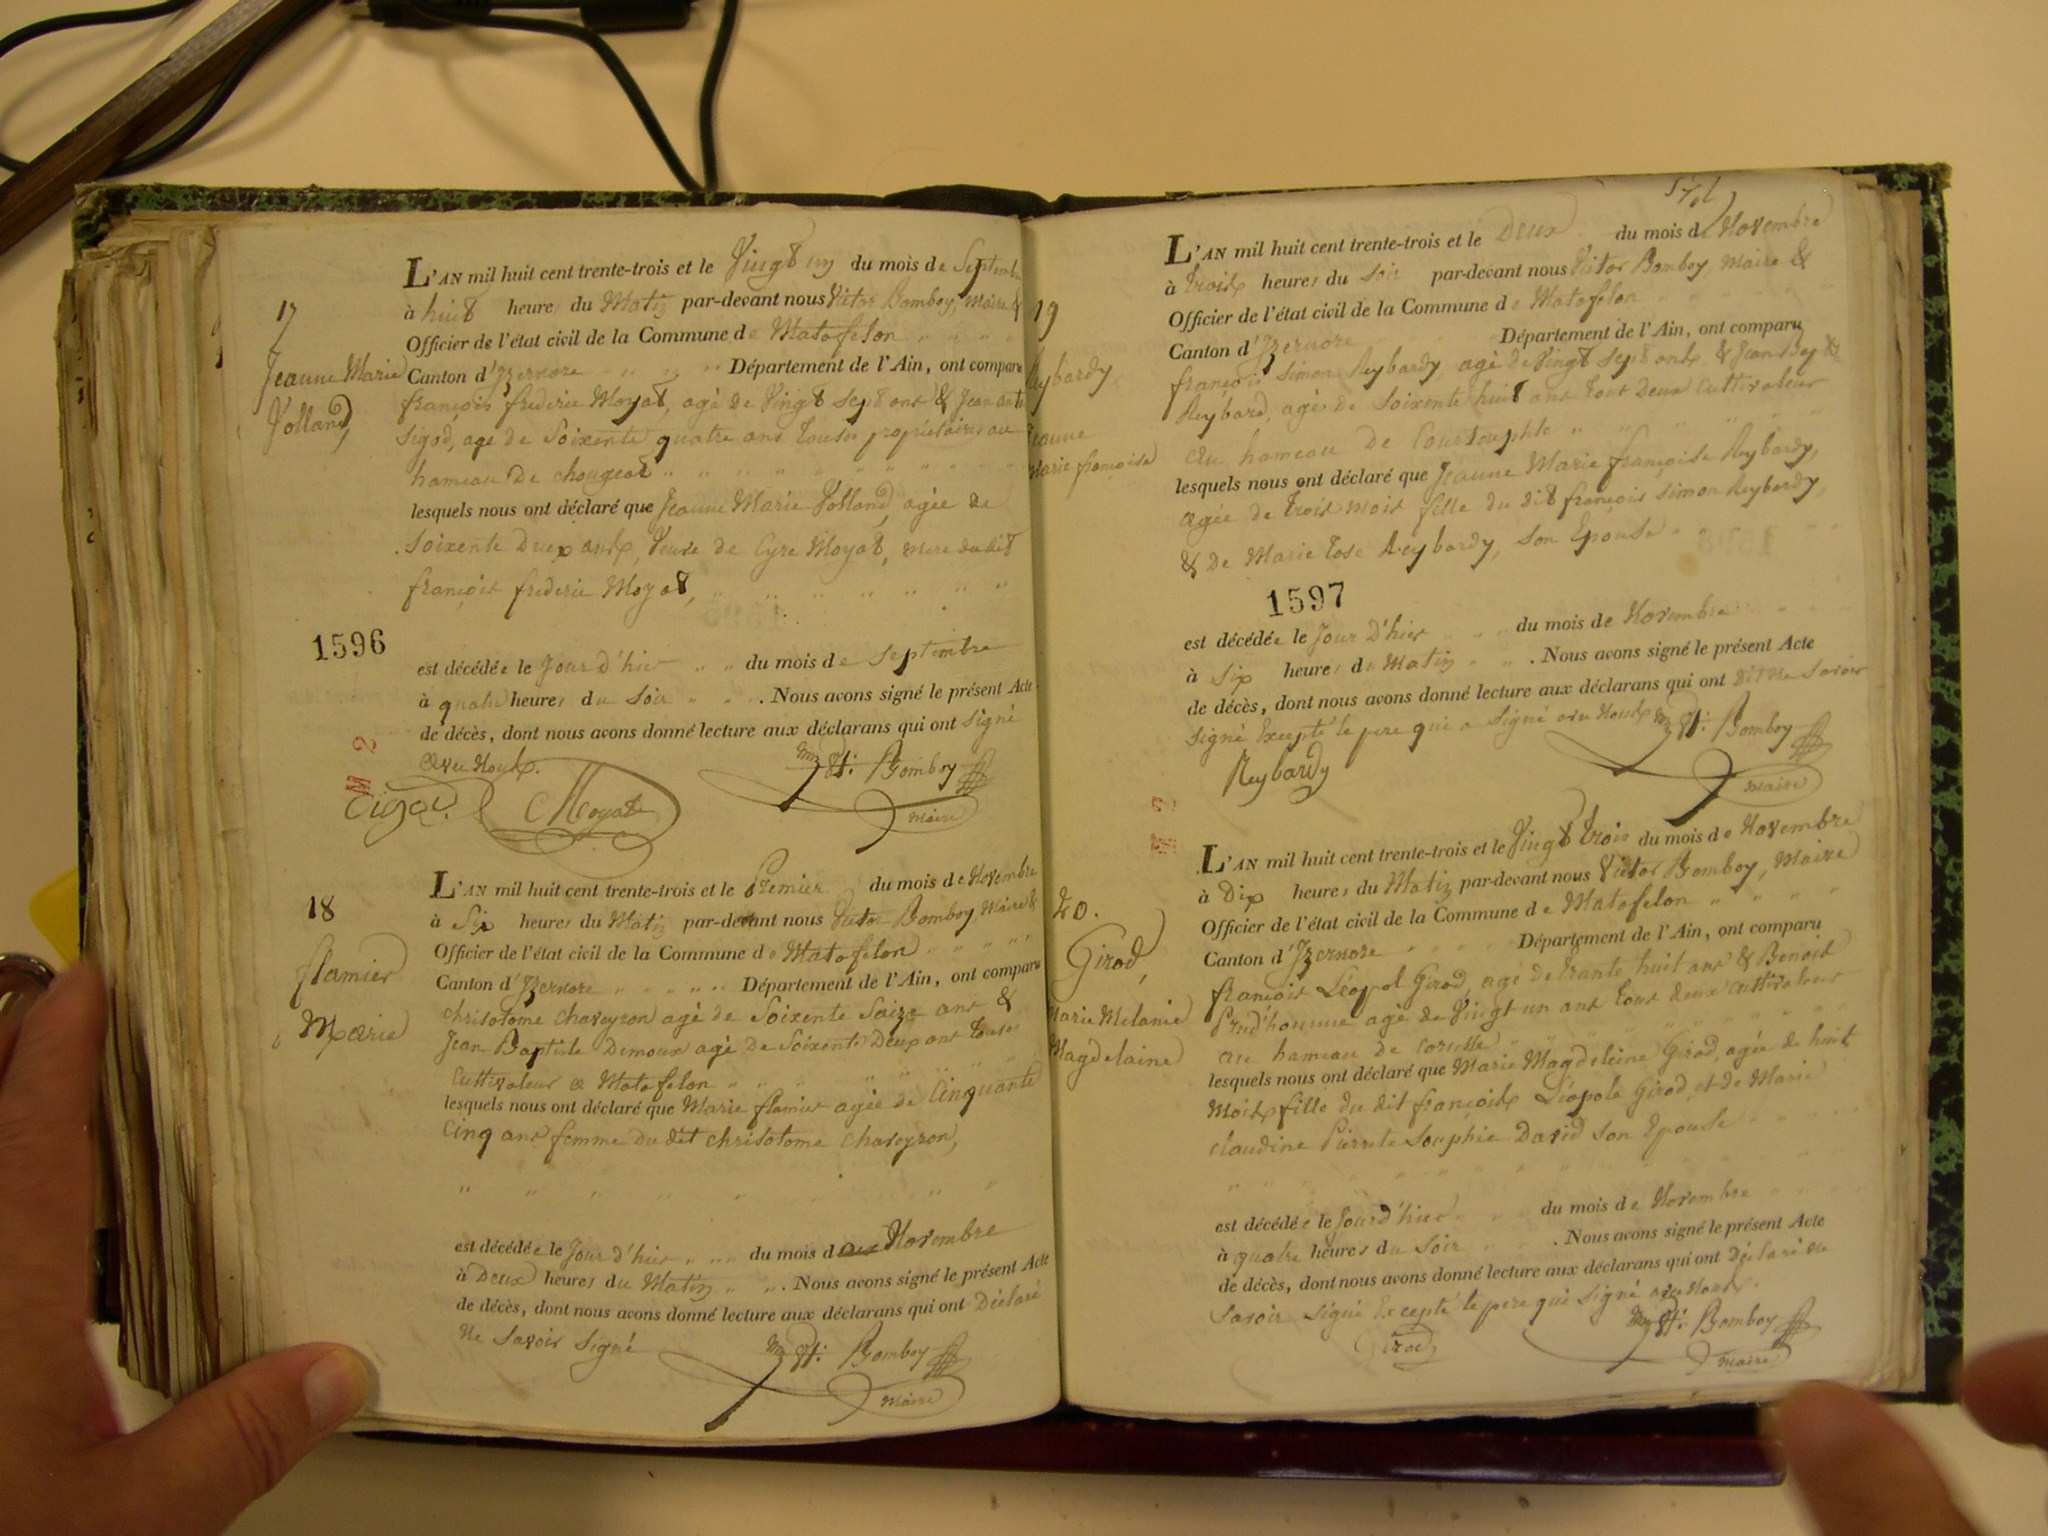 17
Jeanne Marie
Jolland
L'AN mil huit cent trente-trois et le Vingt un du mois de Septembre
à huit heures du Matin par-devant nous Victor Bomboy, Maire &
Officier de l'état civil de la Commune de Matafelon
Canton d'Izernore Département de l'Ain, ont comparu
françois frederic Moyat, agé de Vingt sept ans & Jean ant
Sigod, age de Soixente quatre ans tous propriétaires au
hameau De chougeat
lesquels nous ont déclaré que Jeanne Marie Jolland, agée de
Soixente Deux ans, Veuve de Cyre Moyat, mere du dit
françois frederic Moyat,
1596
est décédée le Jour d'hier du mois de Septembre
à quatre heures du Soir . Nous avons signé le présent Acte
de décès, dont nous avons donné lecture aux déclarans qui ont signé
avec Nous.
M 2
Sigod. Moyat Bomboy
maire
18
flamier
Marie
L'AN mil huit cent trente-trois et le Premier du mois de Novembre
à Six heures du Matin par-devant nous Victor Bomboy Maire &
Officier de l'état civil de la Commune de Matafelon
Canton d'Izernore Département de l'Ain, ont comparu
chrisotome chaveyron agé de Soixente Saize ans &
Jean Baptiste Demoux agé De Soixente Deux ans tous
Cultivateur a Matafelon
lesquels nous ont déclaré que Marie flamier agée de Cinquante
Cinq ans femme du dit chrisotome chaveyron,
est décédée le Jour d'hier du mois de Novembre
à Deux heures du Matin . Nous avons signé le présent Acte
de décès, dont nous avons donné lecture aux déclarans qui ont Déclaré
Ne Savoir Signé
Bomboy
Maire
19
Reybardy
Jeanne
Marie françoise
L'AN mil huit cent trente-trois et le Deux du mois de Novembre
à trois heures du Soir par-devant nous Victor Bomboy Maire &
Officier de l'état civil de la Commune de Matafelon
Canton d'Izernore Département de l'Ain, ont comparu
françois Simon Reybardy, agé de Vingt Sept ans & Jean
Reybard, agé de Soixente huit ans tout Deux Cultivateur
au hameau De Courtouphle
lesquels nous ont déclaré que Jeanne Marie françoise Reybardy,
agée de trois mois fille du dit françois Simon Reybardy,
& de Marie Rose Reybardy, son Epouse
1597
est décédée le Jour D'hier du mois de Novembre
à Six heures du Matin . Nous avons signé le présent Acte
de décès, dont nous avons donné lecture aux déclarans qui ont dit ne Savoir
Signé Excepté le pere qui a Signé avec Nous Bomboy
Reybardy maire
20.
Girod,
Marie Melanie
Magdelaine
L'AN mil huit cent trente-trois et le Vingt trois du mois de Novembre
à Dix heures du Matin par-devant nous Victor Bomboy, Maire
Officier de l'état civil de la Commune de Matafelon
Canton d'Izernore Département de l'Ain, ont comparu
françois Léopol Girod, agé de trante huit ans & Benoit
Prud'homme agé de Vingt un ans tous deux cultivateurs
au hameau de
lesquels nous ont déclaré que Marie Magdeleine Girod, agée de huit
Mois fille du dit françois Léopole Girod, et de Marie
claudine Pierrete Souphie David Son Epouse
est décédée le Jour d'hier du mois de Novembre
à quatre heures du Soir . Nous avons signé le présent Acte
de décès, dont nous avons donné lecture aux déclarans qui ont Déclaré ne
Savoir Signé Excepté le pere qui Signé avec Nous.
Girod Bomboy
maire